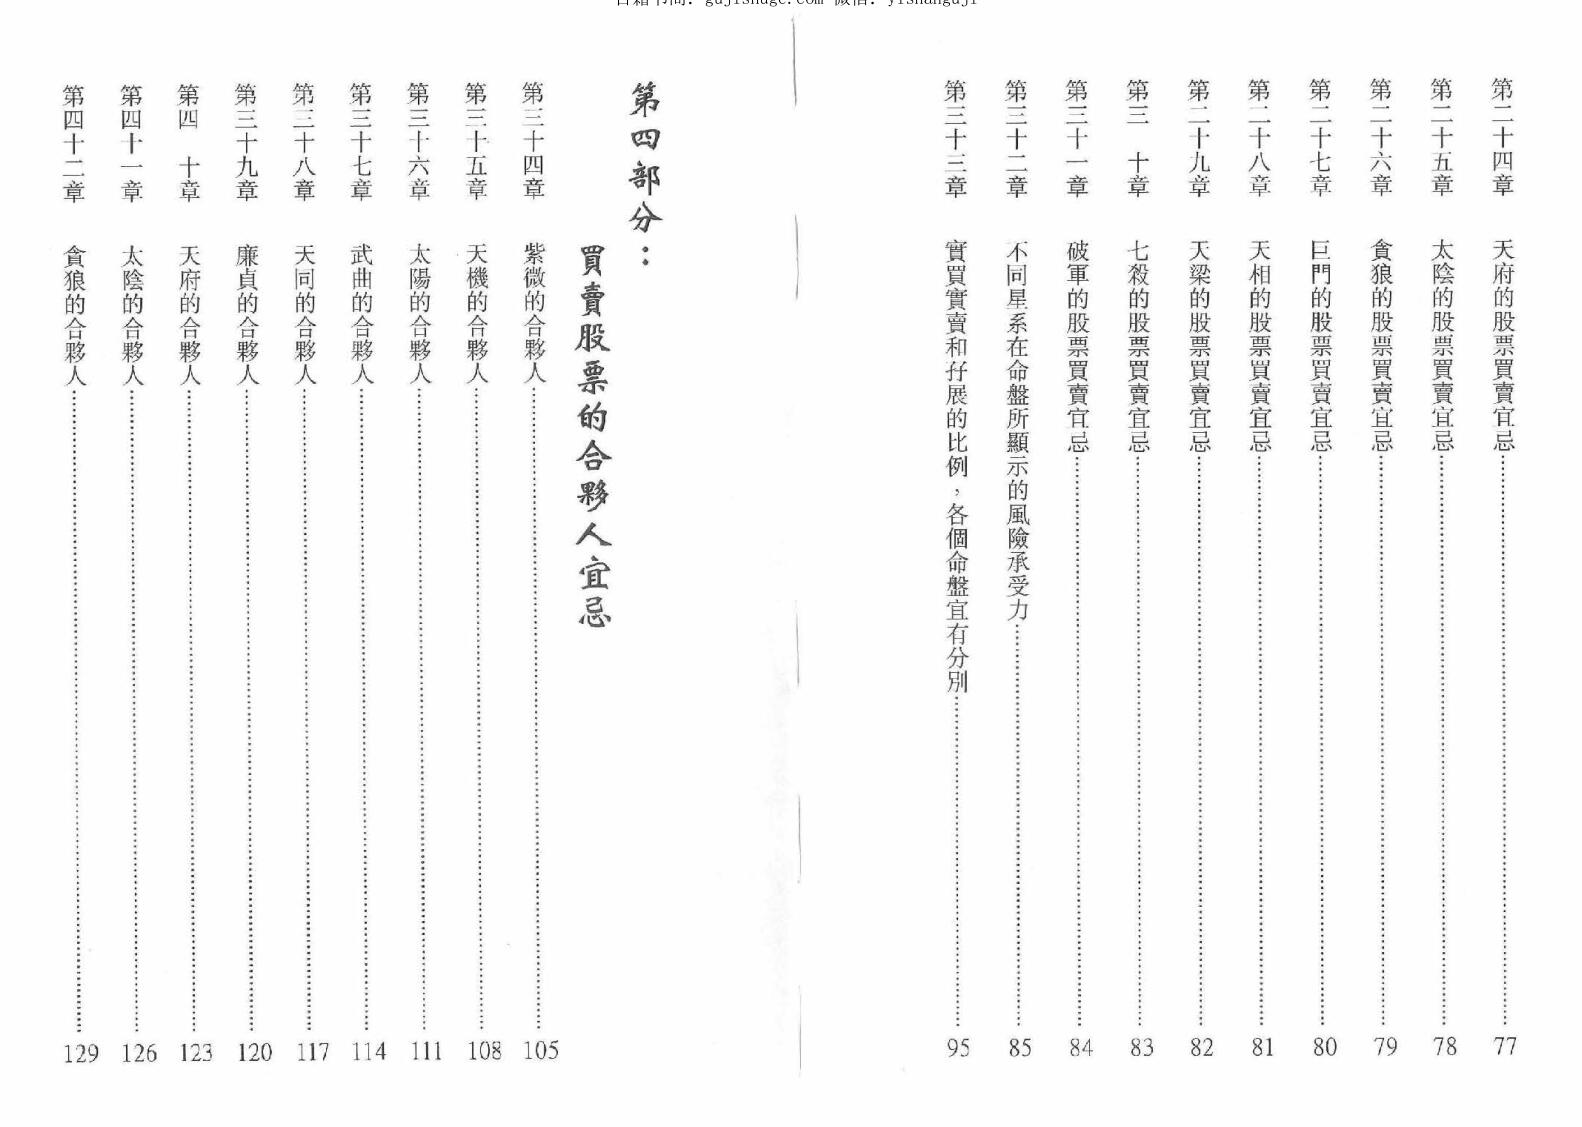 古籍书阁：gujishuge.com 微信：yishanguji
第二十四章　天府的股票買賣宜忌……77
第二十五章　太陰的股票買賣宜忌……78
第二十六章　貪狼的股票買賣宜忌……79
第二十七章　巨門的股票買賣宜忌……80
第二十八章　天相的股票買賣宜忌……81
第二十九章　天梁的股票買賣宜忌……82
第三　十章　七殺的股票買賣宜忌……83
第三十一章　破軍的股票買賣宜忌……84
第三十二章　不同星系在命盤所顯示的風險承受力……85
第三十三章　實買實賣和孖展的比例，各個命盤宜有分別……95
第四部分：
買賣股票的合夥人宜忌
第三十四章　紫微的合夥人……105
第三十五章　天機的合夥人……108
第三十六章　太陽的合夥人……111
第三十七章　武曲的合夥人……114
第三十八章　天同的合夥人……117
第三十九章　廉貞的合夥人……120
第四　十章　天府的合夥人……123
第四十一章　太陰的合夥人……126
第四十二章　貪狼的合夥人……129